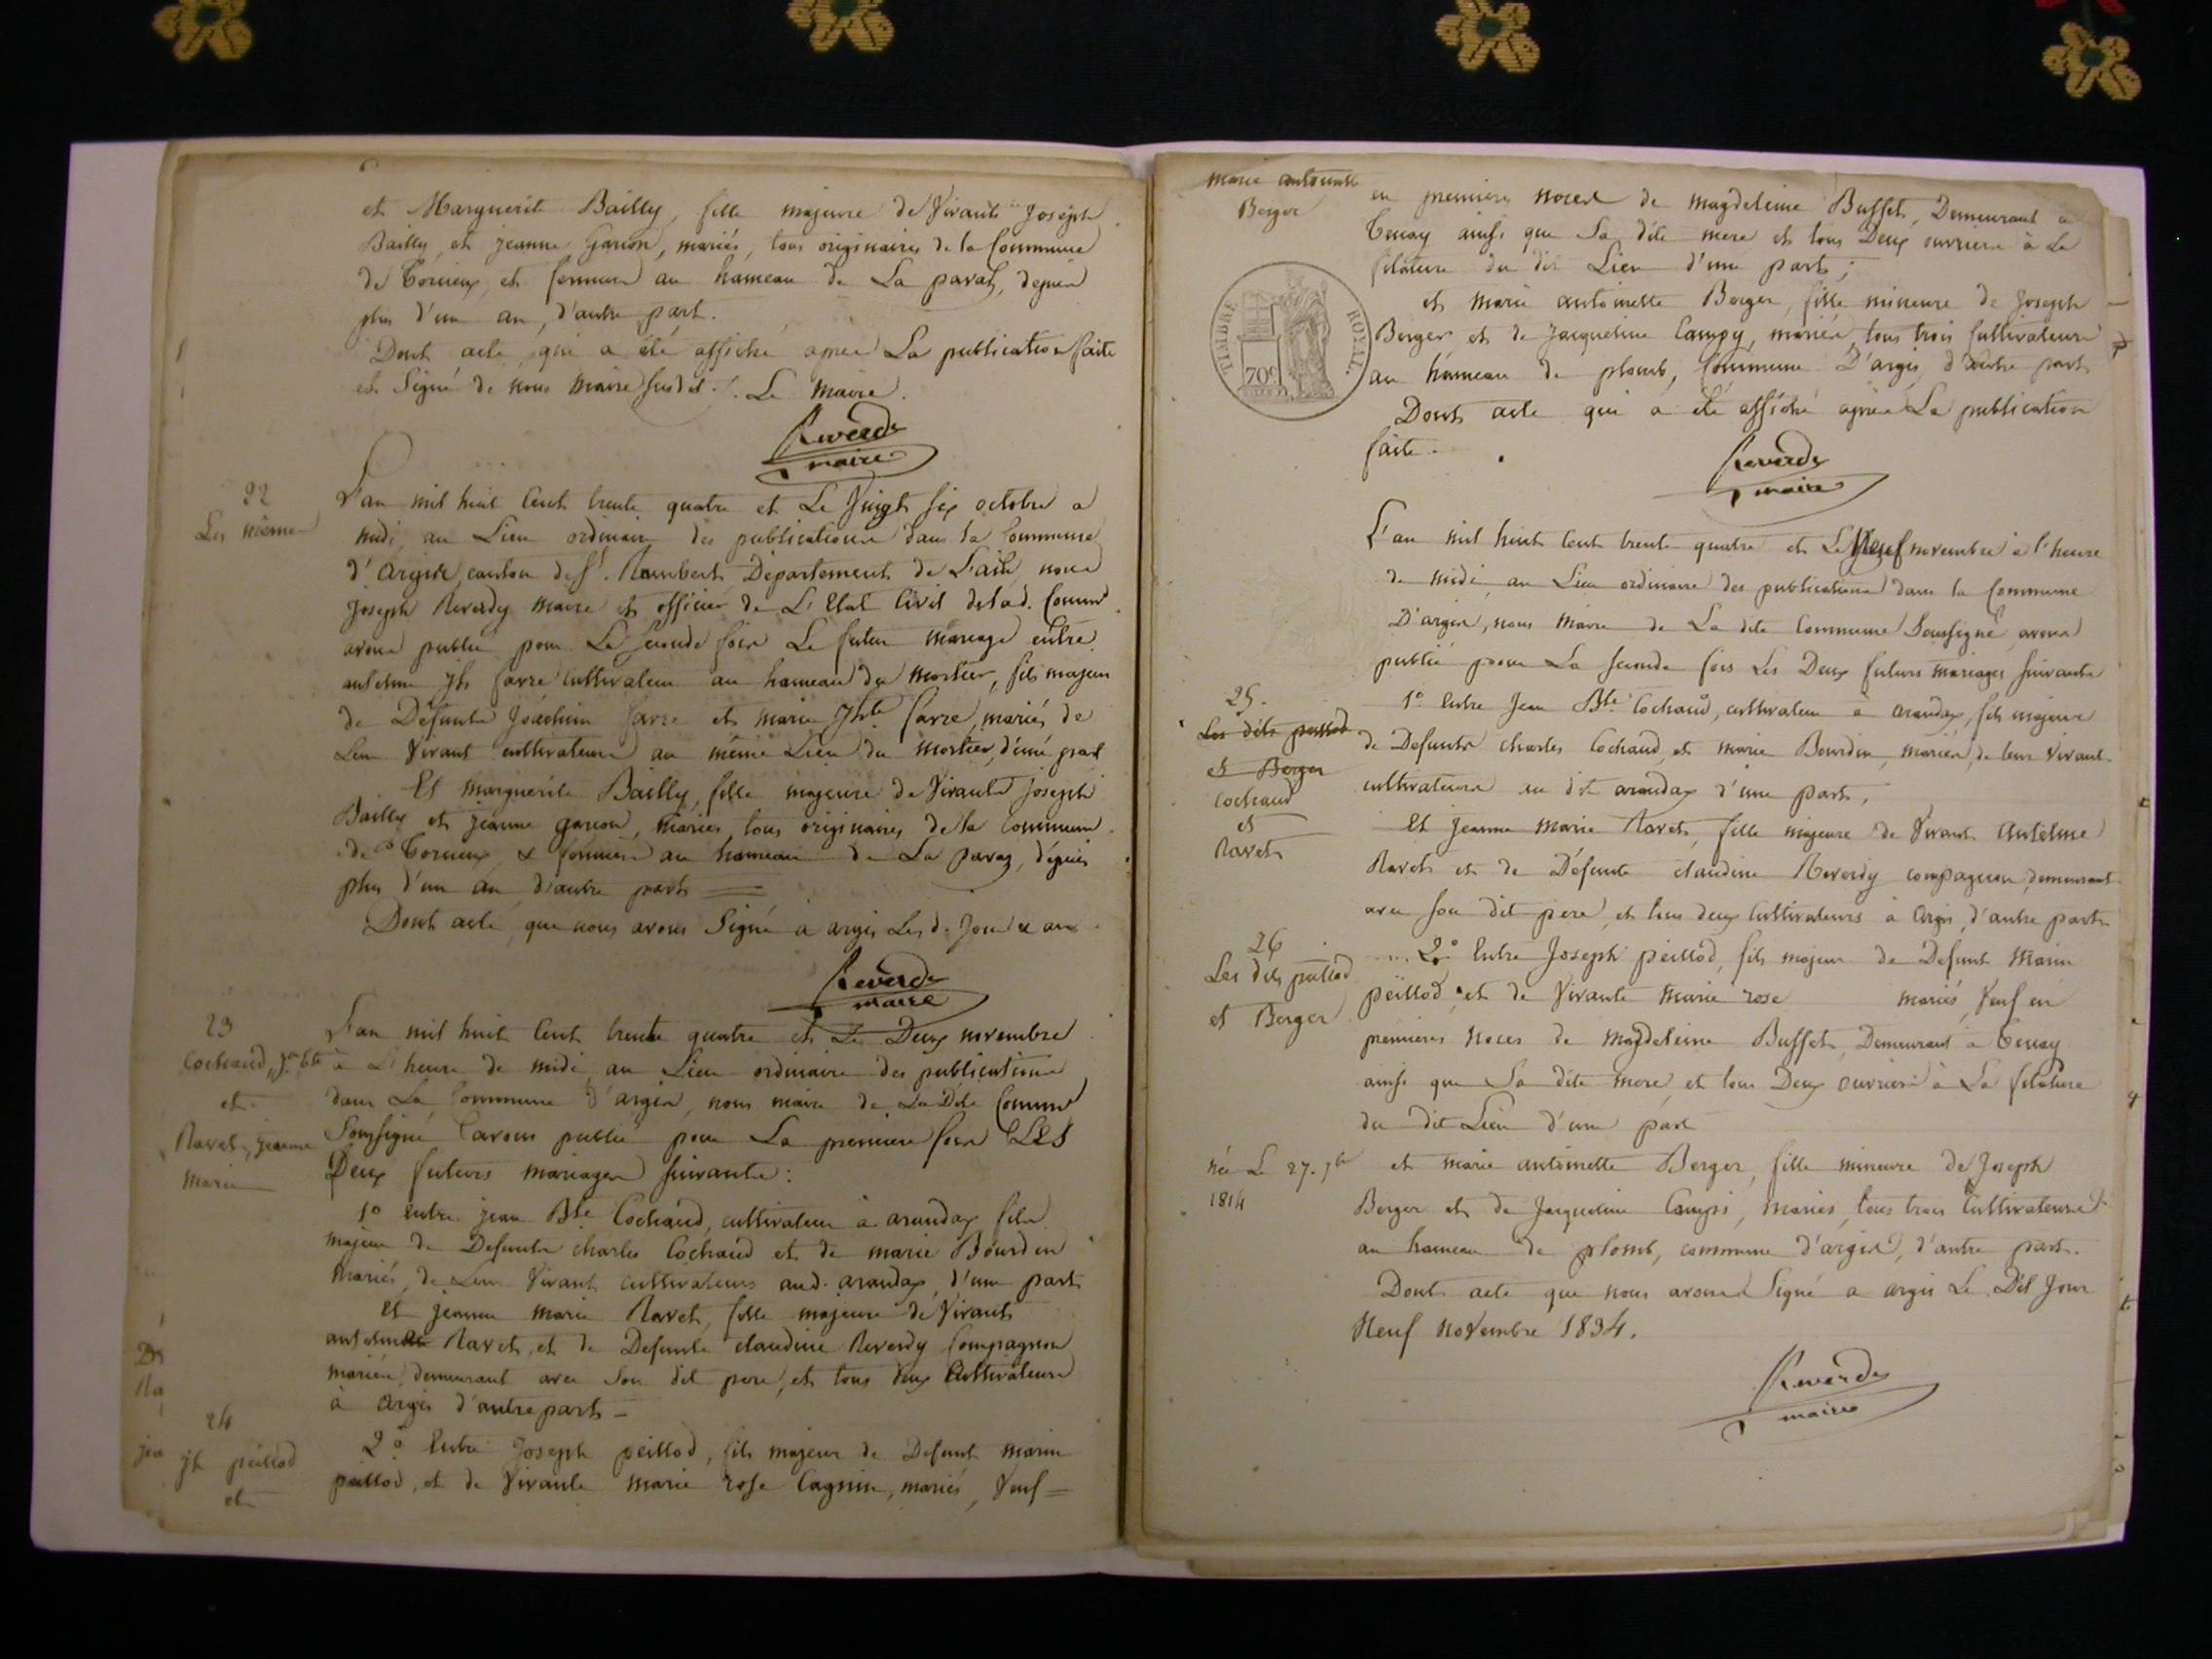 et Marguerite Bailly, fille majeure de Vivants Joseph
Bailly, et jeanne Garion, mariés, tous originaires de la Commune
de Torcieux, et fermiers au hameau de La paraz, depuis
plus d'un an, d'autre part.
Dont acte qui a été affiché aprés La publication faite
et Signé de nous Maire susdit ./. Le Maire.
Reverdy
maire
22
Les mêmes
L'an mil huit Cent trente quatre et Le Vingt six octobre a
midi, au Lieu ordinaire des publications dans la Commune
d'Argis, canton de St. Rambert Département de L'ain, nous
Joseph Reverdy maire et officier de L'Etat Civil de lad. Comme
avons publié pour La seconde fois Le futur mariage entre
antelme jh favre cultivateur au hameau du mortier, fils majeur
de Défunts Joachim favre et marie hte favre, mariés de
Leur Vivant cultivateurs au même Lieu du mortier, d'une part
Et marguérite Bailly, fille majeure de Vivants Joseph
Bailly et jeanne garion, mariés, tous originaires de la Commune
de Torcieux, & fermiers au hameau de La paraz, dépuis
plus d'un an, d'autre parts
Dont acte, que nous avons Signé à argis Les d. Jour & an
Reverdy
maire
23
Cochaud, jn bte
et
Ravet, jeanne
Marie
L'an mil huit Cent trente quatre et Le Deux novembre
à L'heure de midi, au Lieu ordinaire des publications
dans La Commune d'argis, nous maire de La Dite Commune
Soussigné avons publié pour La premiere fois LES
Deux futurs mariages suivants :
1º Entre jean Bte Cochaud, cultivateur à arandas fils
majeur de Defunts charles Cochaud et de marie Bourdin
mariés, de Leur Vivant cultivateurs aud. arandas, d'une part
Et jeanne marie Ravet, fille majeure de Vivant
antelme Ravet, et de Defunte claudine Reverdy Compagnon
mariés, demeurant avec Son dit pere, et tous deux Cultivateurs
à Argis d'autre part -
24
jh peillod
et
2º Entre Joseph peillod, fils majeur de Defunt marin
peillod, et de Vivante marie rose Cagnin, mariés, Veuf =
Marie antoinette
Berger
en premieres noces de magdeleine Buffet, Demeurant a
Tenay ainsi que Sa dite mere et tous Deux ouvriers à La
filature du dit Lieu d'une part ;
et marie antoinette Berger, fille mineure de Joseph
Berger et de Jacqueline Campy, mariés, tous trois Cultivateurs
au hameau de plomb, Commune D'argis, d'autre part
Dont acte qui a été affiché aprés La publication
faite.
TIMBRE ROYAL
70c
Reverdy
maire
L'an mil huit Cent trente quatre et Le Neuf novembre à l'heure
de midi, au Lieu ordinaire des publications dans la Commune
D'argis, nous maire de La dite Commune Soussigné, avons
publié pour La seconde fois Les Deux futurs mariages suivants
25.
Les dits peillod
et Berger
Cochaud
et
Ravet
1º Entre Jean Bte Cochaud, cultivateur à arandas, fils majeur
de Defunts charles Cochaud, et marie Bourdin, mariés, de leur vivant
cultivateurs au dit arandas d'une part,
Et Jeanne Marie Ravet, fille majeure de Vivant Antelme
Ravet et de Défunte claudine Reverdy compagnon, demeurant
avec Son dit pere, et tous deux Cultivateurs à Argis, d'autre part
26
Les dits peillod
et Berger
2º Entre Joseph peillod, fils majeur de Defunt Marin
peillod, et de Vivante Marie rose mariés, Veuf en
premieres Noces de Magdeleine Buffet, Demeurant à Tenay
ainsi que Sa dite mere, et tous Deux ouvriers à La filature
du dit Lieu d'une part
née Le 27. 7bre
1814
et marie antoinette Berger, fille mineure de Joseph
Berger et de Jacqueline Campi, mariés, tous trois Cultivateurs
au hameau de plomb, commune d'argis, d'autre part.
Dont acte que nous avons Signé a argis Le Dit Jour
Neuf novembre 1834.
Reverdy
maire